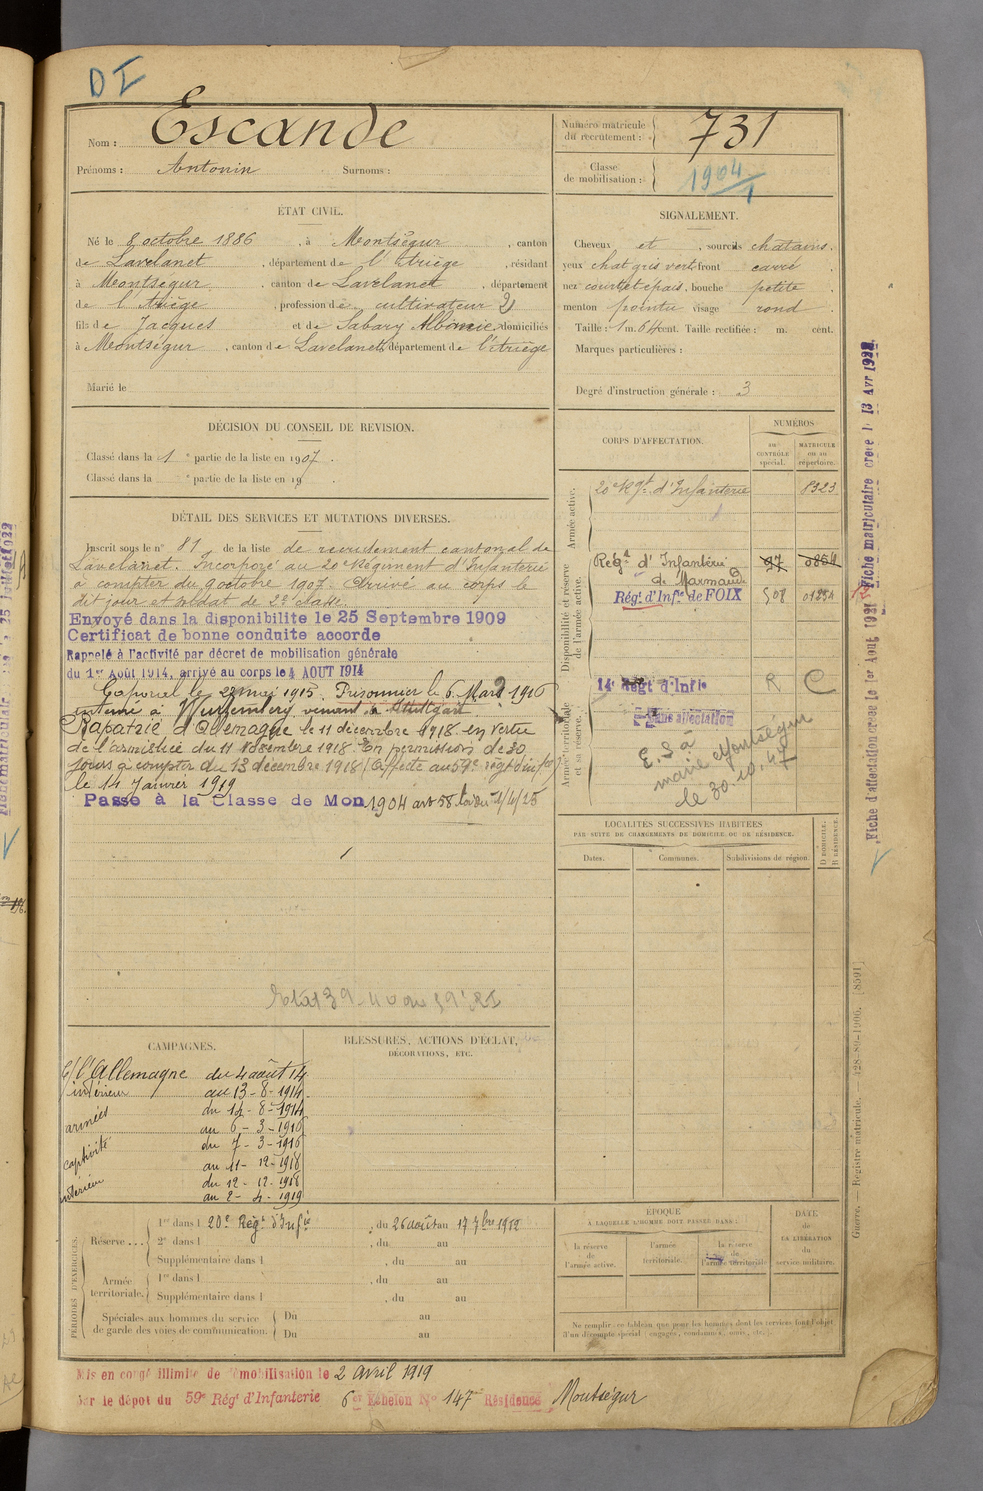 DI
Nom : Escande
Prénoms : Antonin Surnoms :
Numéro matricule du recrutement : 731
Classe de mobilisation : 1904/1
ÉTAT CIVIL.
Né le 8 octobre 1886, à Montségur, canton
de Lavelanet, département de l'Ariège, résidant
à Montségur, canton de Lavelanet, département
de l'Ariège, profession de cultivateur
fils de Jacques et de Sabary domiciliés
à Montségur, canton de Lavelanet, département de l'Ariège
Marié le
SIGNALEMENT.
Cheveux et, sourcils chatains.
yeux chat gris vert front carré
nez court et épais, bouche petite
menton pointu visage rond
Taille : 1 m. 64 cent. Taille rectifiée : m. cent.
Marques particulières :
Degré d'instruction générale : 3
DÉCISION DU CONSEIL DE REVISION.
Classé dans la 1 e partie de la liste en 1907.
Classé dans la e partie de la liste en 19
DÉTAIL DES SERVICES ET MUTATIONS DIVERSES.
Inscrit sous le n° 81 de la liste de recrutement cantonal de
Lavelanet. Incorporé au 20e Régiment d'Infanterie
à compter du 9 octobre 1907. Arrivé au corps le
dit jour et soldat de 2e classe.
Envoyé dans la disponibilite le 25 Septembre 1909
Certificat de bonne conduite accorde
Rappelé à l'activité par décret de mobilisation générale
du 1er Août 1914, arrivé au corps le 4 AOUT 1914
Caporal le 22 mai 1915. Prisonnier le 6 Mars 1916
interné à venant à Stuttgart
Rapatrié d'Allemagne le 11 décembre 1918 en vertu
de l'armistice du 11 Novembre 1918. En permission de 30
jours à compter du 13 décembre 1918. Affecté au 59e régt d'inf
le 14 Janvier 1919
Passé à la Classe de Mon 1904 art 58 loi du 1/4/23
CORPS D'AFFECTATION.
NUMÉROS
AU CONTRÔLE spécial.
MATRICULE OU AU répertoire.
Armée active.
20e Rgt d'Infanterie 8323
Disponibilité et réserve de l'armée active.
Régt d'Infanterie de Marmande
Régt d'Infie de FOIX 508
Armée territoriale et sa réserve.
14e Regt d'Infie R C
Sans affectation
E.S à
mairie Montségur
le 30.10.47
LOCALITÉS SUCCESSIVES HABITÉES
PAR SUITE DE CHANGEMENTS DE DOMICILE OU DE RÉSIDENCE.
Dates. Communes. Subdivisions de région. D DOMICILE. R RÉSIDENCE.
CAMPAGNES.
C/ l'Allemagne du 4 août 14
intérieur au 13-8-1914
armées du 14-8-1914
au 6-3-1916
captivité du 7-3-1916
au 11-12-1918
intérieur du 12-12-1918
au 2-4-1919
BLESSURES, ACTIONS D'ÉCLAT,
DÉCORATIONS, ETC.
PÉRIODES D'EXERCICES.
Réserve... 1re dans l 20e Régt d'Infie, du 26 août au 17 7bre 1912
2e dans l, du au
Supplémentaire dans l, du au
Armée territoriale. 1re dans l, du au
Supplémentaire dans l, du au
Spéciales aux hommes du service de garde des voies de communication. Du au
Du au
ÉPOQUE
À LAQUELLE L'HOMME DOIT PASSER DANS :
la réserve de l'armée active. l'armée territoriale. la réserve de l'armée territoriale
DATE de LA LIBÉRATION du service militaire.
Ne remplir ce tableau que pour les hommes dont les services font l'objet d'un décompte spécial (engagés, condamnés, omis, etc.).
Mis en congé illimité de démobilisation le 2 Avril 1919
par le dépôt du 59e Régt d'Infanterie 6e Échelon N° 147 Résidence Montségur
Fiche d'affectation créée le 1er Aout 1921
Fiche matriculaire creée le 13 Avr 1922
Guerre. — Registre matricule. 128-89-1906. [8591]